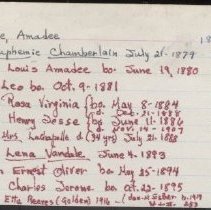 e, Amadee
uphemie Chamberlain July 21-1879
Louis Amadee bo. June 19, 1880
Leo bo. Oct. 9-1881
Rosa Virginia bo. May 8-1884
d. Dec. 21-1888
Henry Jesse bo. June 11-1886
d. Nov. 14-1907
Mrs. (24 yrs) July 21-1888
Lena Vandale June 4-1893
Ernest Oliver bo. May 25-1894
Charles Jerome bo. Oct. 22-1895
Etta Reeves (Golden) 1916